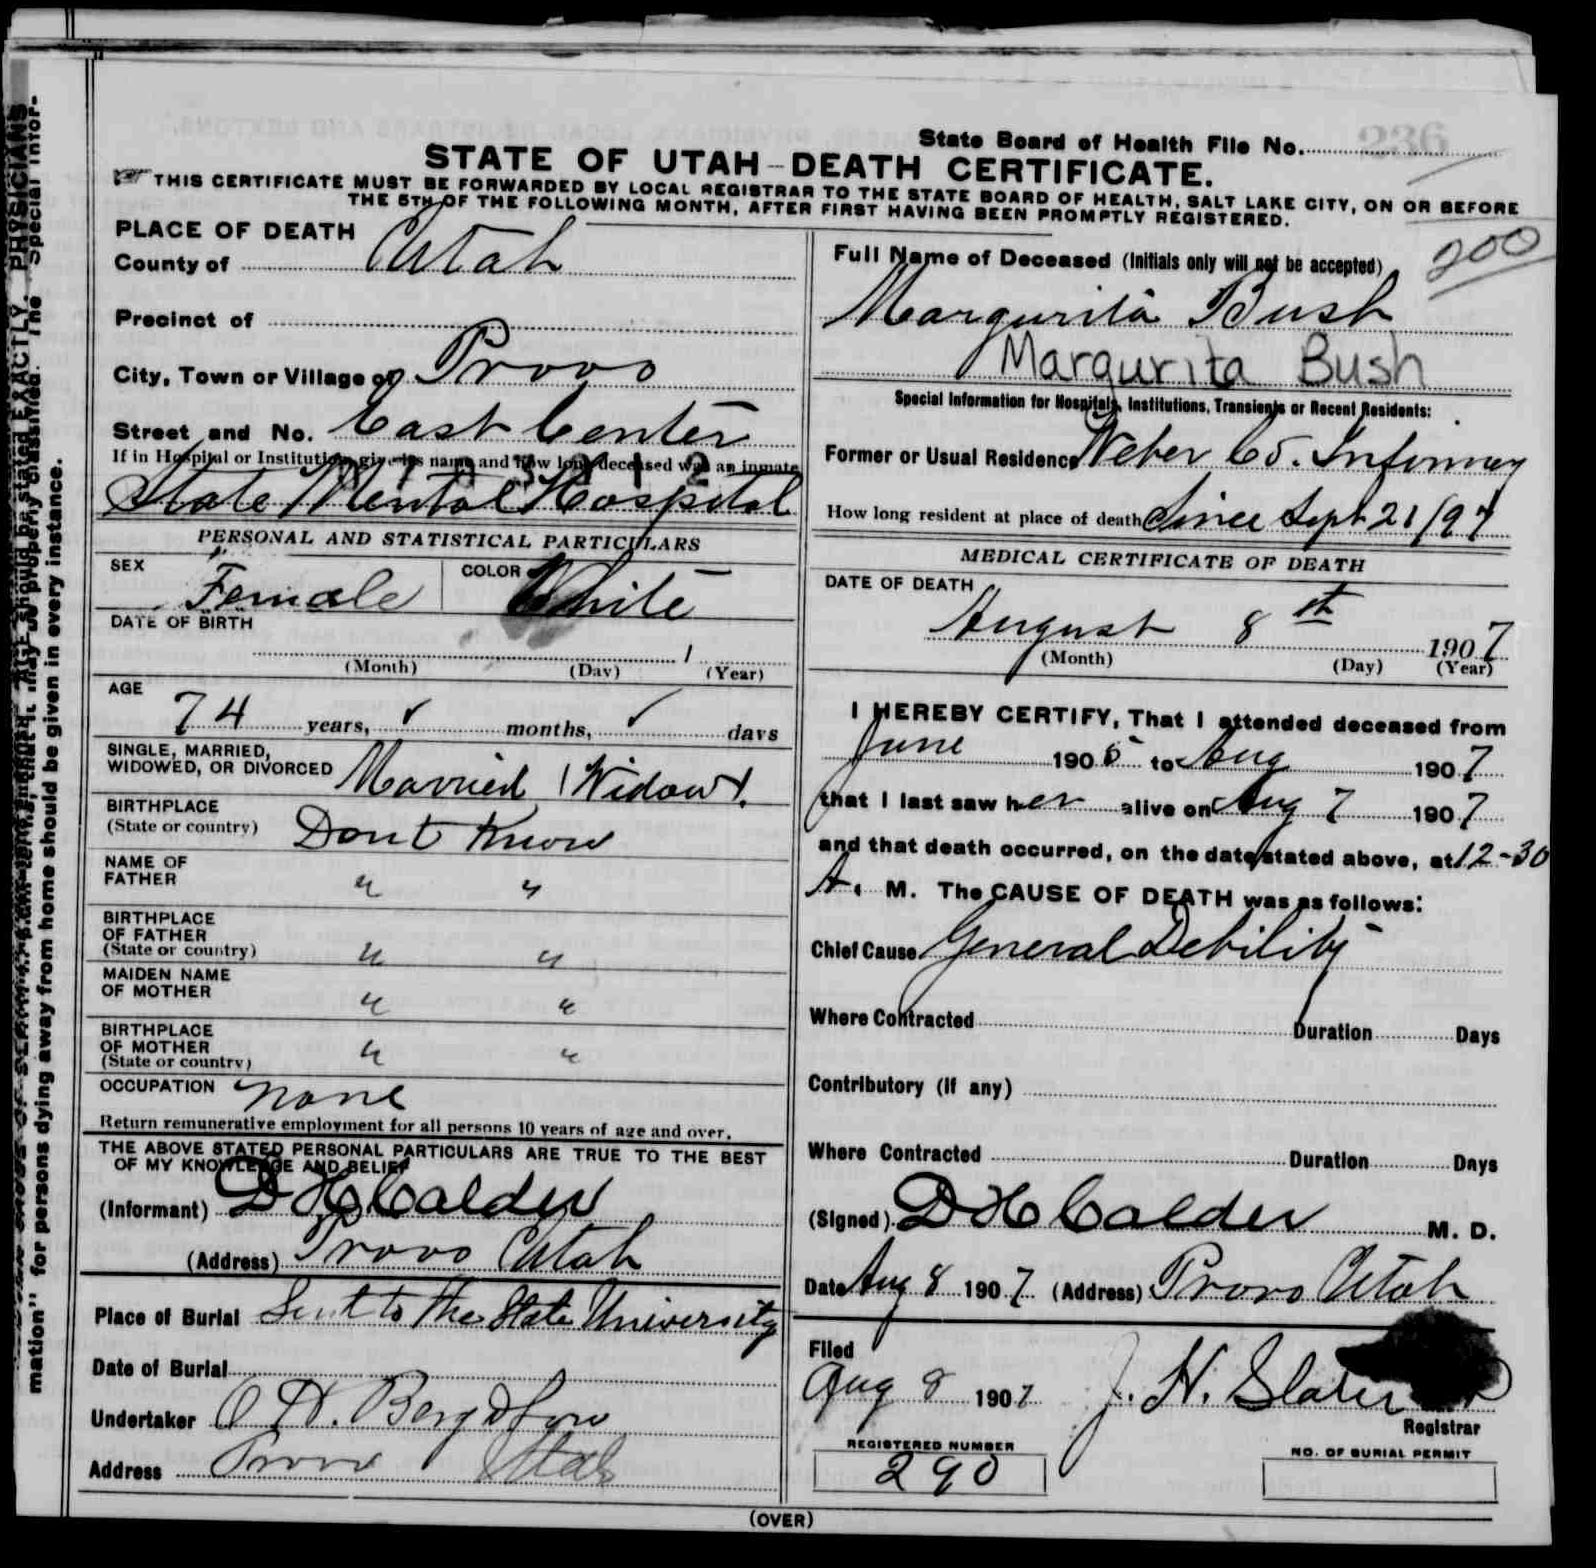 State Board of Health File No. 236
STATE OF UTAH—DEATH CERTIFICATE.
THIS CERTIFICATE MUST BE FORWARDED BY LOCAL REGISTRAR TO THE STATE BOARD OF HEALTH, SALT LAKE CITY, ON OR BEFORE
THE 5TH OF THE FOLLOWING MONTH, AFTER FIRST HAVING BEEN PROMPTLY REGISTERED.
PLACE OF DEATH
County of Utah
Precinct of
City, Town or Village of Provo
Street and No. East Center
If in Hospital or Institution, give its name and how long deceased was an inmate
State Mental Hospital
PERSONAL AND STATISTICAL PARTICULARS
SEX Female COLOR White
DATE OF BIRTH
1
(Month) (Day) (Year)
AGE
74 years, ✓ months, ✓ days
SINGLE, MARRIED,
WIDOWED, OR DIVORCED Married (Widow).
BIRTHPLACE
(State or country) Dont Know
NAME OF
FATHER " "
BIRTHPLACE
OF FATHER
(State or country) " "
MAIDEN NAME
OF MOTHER " "
BIRTHPLACE
OF MOTHER
(State or country) " "
OCCUPATION none
Return remunerative employment for all persons 10 years of age and over.
THE ABOVE STATED PERSONAL PARTICULARS ARE TRUE TO THE BEST
OF MY KNOWLEDGE AND BELIEF
(Informant) D H Calder
(Address) Provo Utah
Place of Burial Sent to the State University
Date of Burial
Undertaker O H. Berg & Son
Address Provo Utah
200
Full Name of Deceased (Initials only will not be accepted)
Margurita Bush
Margurita Bush
Special Information for Hospitals, Institutions, Transients or Recent Residents:
Former or Usual Residence Weber Co. Infirmary
How long resident at place of death Since Sept 21/97
MEDICAL CERTIFICATE OF DEATH
DATE OF DEATH
August 8th 1907
(Month) (Day) (Year)
I HEREBY CERTIFY, That I attended deceased from
June 1905 to Aug 1907
that I last saw her alive on Aug 7 1907
and that death occurred, on the date stated above, at 12-30
A. M. The CAUSE OF DEATH was as follows:
Chief Cause General Debility
Where Contracted Duration Days
Contributory (If any)
Where Contracted Duration Days
(Signed) D H Calder M. D.
Date Aug 8 1907 (Address) Provo Utah
Filed
Aug 8 1907 J. H. Slater
Registrar
REGISTERED NUMBER
290
NO. OF BURIAL PERMIT
(OVER)
mation" for persons dying away from home should be given in every instance.